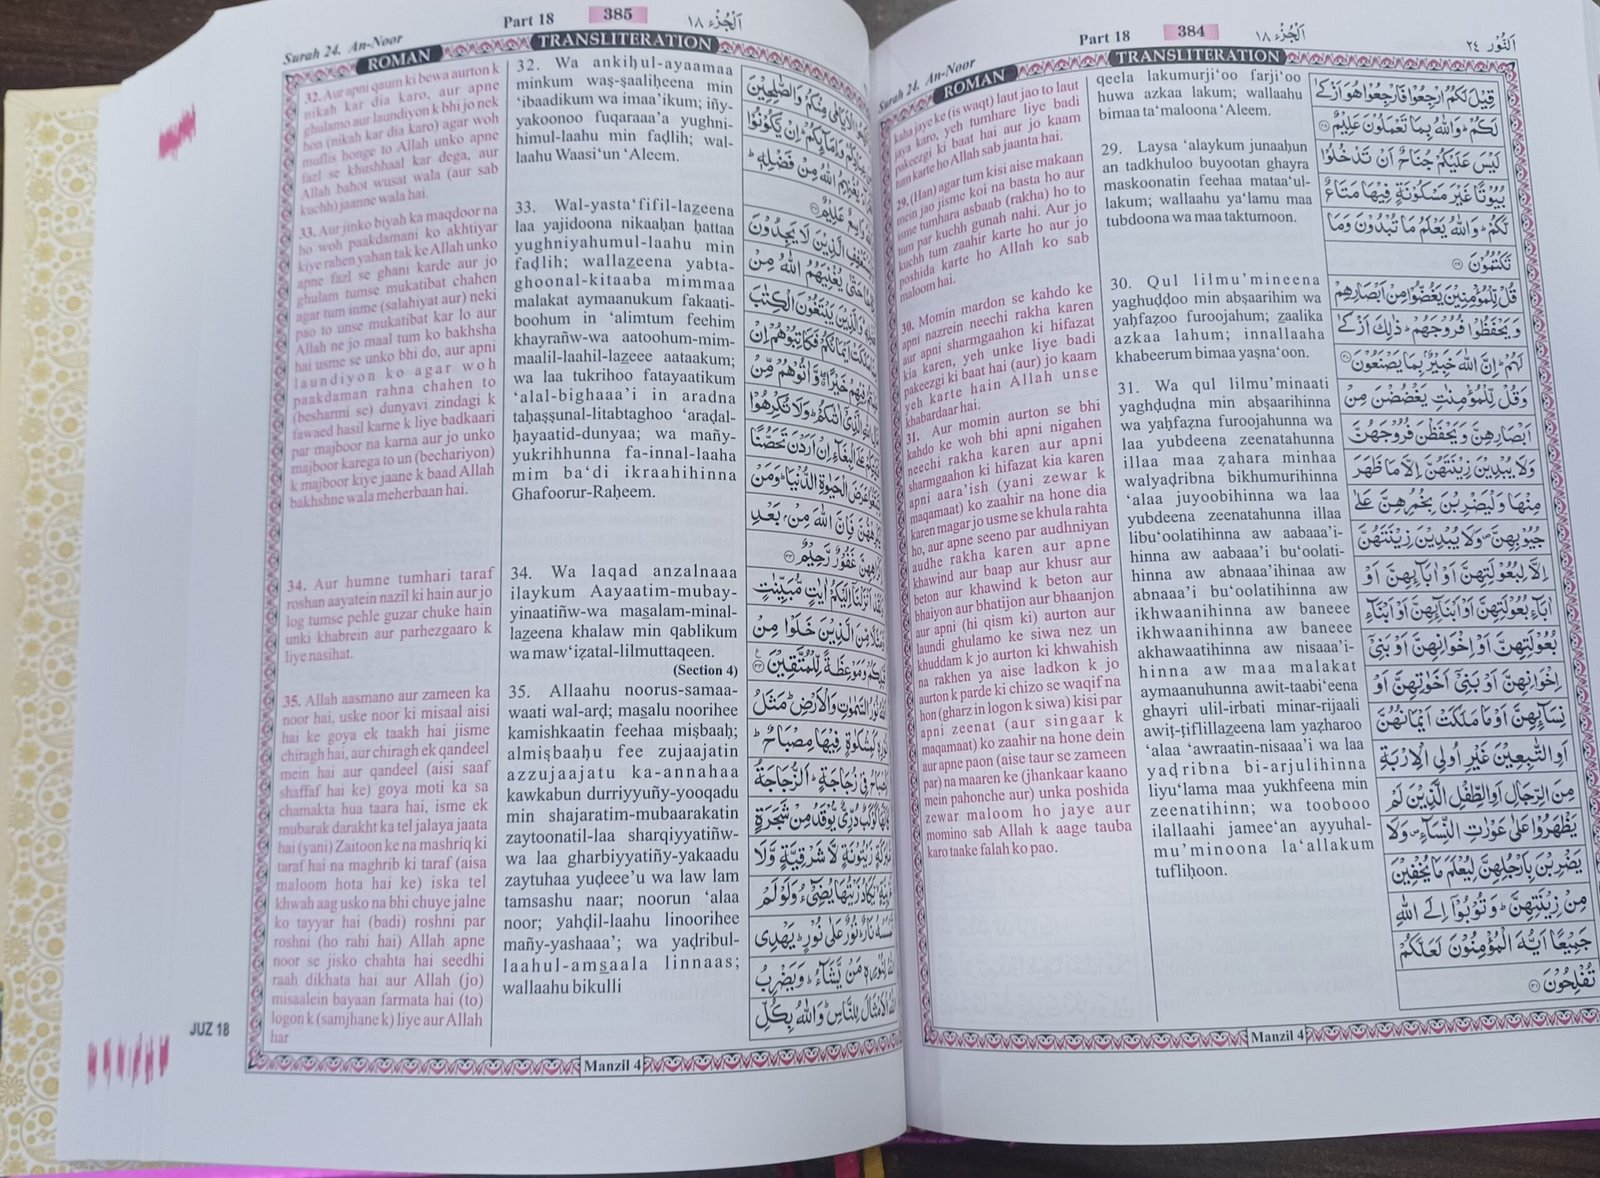 Surah 24. An-Noor
Part 18
384
اَلْجُزْء ١٨
اَلنُّوْر ٢٤
ROMAN
TRANSLITERATION
قِيْلَ لَكُمُ ارْجِعُوْا فَارْجِعُوْا هُوَ اَزْكٰى
لَكُمْ ؕ وَاللّٰهُ بِمَا تَعْمَلُوْنَ عَلِيْمٌ ۝٢٨
لَيْسَ عَلَيْكُمْ جُنَاحٌ اَنْ تَدْخُلُوْا
بُيُوْتًا غَيْرَ مَسْكُوْنَةٍ فِيْهَا مَتَاعٌ
لَّكُمْ ؕ وَاللّٰهُ يَعْلَمُ مَا تُبْدُوْنَ وَمَا
تَكْتُمُوْنَ ۝٢٩
قُلْ لِّلْمُؤْمِنِيْنَ يَغُضُّوْا مِنْ اَبْصَارِهِمْ
وَيَحْفَظُوْا فُرُوْجَهُمْ ؕ ذٰلِكَ اَزْكٰى
لَهُمْ ؕ اِنَّ اللّٰهَ خَبِيْرٌۢ بِمَا يَصْنَعُوْنَ ۝٣٠
وَقُلْ لِّلْمُؤْمِنٰتِ يَغْضُضْنَ مِنْ
اَبْصَارِهِنَّ وَيَحْفَظْنَ فُرُوْجَهُنَّ
وَلَا يُبْدِيْنَ زِيْنَتَهُنَّ اِلَّا مَا ظَهَرَ
مِنْهَا وَلْيَضْرِبْنَ بِخُمُرِهِنَّ عَلٰى
جُيُوْبِهِنَّ ۪ وَلَا يُبْدِيْنَ زِيْنَتَهُنَّ
اِلَّا لِبُعُوْلَتِهِنَّ اَوْ اٰبَآئِهِنَّ اَوْ
اٰبَآءِ بُعُوْلَتِهِنَّ اَوْ اَبْنَآئِهِنَّ اَوْ اَبْنَآءِ
بُعُوْلَتِهِنَّ اَوْ اِخْوَانِهِنَّ اَوْ بَنِيْۤ
اِخْوَانِهِنَّ اَوْ بَنِيْۤ اَخَوٰتِهِنَّ اَوْ
نِسَآئِهِنَّ اَوْ مَا مَلَكَتْ اَيْمَانُهُنَّ
اَوِ التّٰبِعِيْنَ غَيْرِ اُولِي الْاِرْبَةِ
مِنَ الرِّجَالِ اَوِ الطِّفْلِ الَّذِيْنَ لَمْ
يَظْهَرُوْا عَلٰى عَوْرٰتِ النِّسَآءِ ۪ وَلَا
يَضْرِبْنَ بِاَرْجُلِهِنَّ لِيُعْلَمَ مَا يُخْفِيْنَ
مِنْ زِيْنَتِهِنَّ ؕ وَتُوْبُوْۤا اِلَى اللّٰهِ
جَمِيْعًا اَيُّهَ الْمُؤْمِنُوْنَ لَعَلَّكُمْ
تُفْلِحُوْنَ ۝٣١
qeela lakumurji’oo farji‘oo
huwa azkaa lakum; wallaahu
bimaa ta‘maloona ‘Aleem.
29. Laysa ‘alaykum junaaḥun
an tadkhuloo buyootan ghayra
maskoonatin feehaa mataa‘ul-
lakum; wallaahu ya‘lamu maa
tubdoona wa maa taktumoon.
30. Qul lilmu’mineena
yaghuḍḍoo min abṣaarihim wa
yaḥfaẓoo furoojahum; zaalika
azkaa lahum; innallaaha
khabeerum bimaa yaṣna‘oon.
31. Wa qul lilmu’minaati
yaghḍuḍna min abṣaarihinna
wa yaḥfaẓna furoojahunna wa
laa yubdeena zeenatahunna
illaa maa ẓahara minhaa
walyaḍribna bikhumurihinna
‘alaa juyoobihinna wa laa
yubdeena zeenatahunna illaa
libu‘oolatihinna aw aabaaa’i-
hinna aw aabaaa’i bu‘oolati-
hinna aw abnaaa’ihinaa aw
abnaaa’i bu‘oolatihinna aw
ikhwaanihinna aw baneee
ikhwaanihinna aw baneee
akhawaatihinna aw nisaaa’i-
hinna aw maa malakat
aymaanuhunna awit-taabi‘eena
ghayri ulil-irbati minar-rijaali
awiṭ-ṭiflillazeena lam yaẓharoo
‘alaa ‘awraatin-nisaaa’i wa laa
yaḍribna bi-arjulihinna
liyu‘lama maa yukhfeena min
zeenatihinn; wa toobooo
ilallaahi jamee‘an ayyuhal-
mu’minoona la‘allakum
tufliḥoon.
kaha jaye ke (is waqt) laut jao to laut
jaya karo, yeh tumhare liye badi
pakeezgi ki baat hai aur jo kaam
tum karte ho Allah sab jaanta hai.
29. (Han) agar tum kisi aise makaan
mein jao jisme koi na basta ho aur
isme tumhara asbaab (rakha) ho to
tum par kuchh gunah nahi. Aur jo
kuchh tum zaahir karte ho aur jo
poshida karte ho Allah ko sab
maloom hai.
30. Momin mardon se kahdo ke
apni nazrein neechi rakha karen
aur apni sharmgaahon ki hifazat
kia karen, yeh unke liye badi
pakeezgi ki baat hai (aur) jo kaam
yeh karte hain Allah unse
khabardaar hai.
31. Aur momin aurton se bhi
kahdo ke woh bhi apni nigahen
neechi rakha karen aur apni
sharmgaahon ki hifazat kia karen
apni aara’ish (yani zewar k
maqamaat) ko zaahir na hone dia
karen magar jo usme se khula rahta
ho, aur apne seeno par audhniyan
audhe rakha karen aur apne
khawind aur baap aur khusr aur
beton aur khawind k beton aur
bhaiyon aur bhatijon aur bhaanjon
aur apni (hi qism ki) aurton aur
laundi ghulamo ke siwa nez un
khuddam k jo aurton ki khwahish
na rakhen ya aise ladkon k jo
aurton k parde ki chizo se waqif na
hon (gharz in logon k siwa) kisi par
apni zeenat (aur singaar k
maqamaat) ko zaahir na hone dein
aur apne paon (aise taur se zameen
par) na maaren ke (jhankaar kaano
mein pahonche aur) unka poshida
zewar maloom ho jaye aur
momino sab Allah k aage tauba
karo taake falah ko pao.
Manzil 4
Surah 24. An-Noor
Part 18
385
اَلْجُزْء ١٨
ROMAN
TRANSLITERATION
الْاَيَامٰى مِنْكُمْ وَالصّٰلِحِيْنَ
وَاِمَآئِكُمْ ؕ اِنْ يَّكُوْنُوْا
يُغْنِهِمُ اللّٰهُ مِنْ فَضْلِهٖ ؕ
وَاسِعٌ عَلِيْمٌ ۝٣٢
الَّذِيْنَ لَا يَجِدُوْنَ
حَتّٰى يُغْنِيَهُمُ اللّٰهُ مِنْ
وَالَّذِيْنَ يَبْتَغُوْنَ الْكِتٰبَ
مَلَكَتْ اَيْمَانُكُمْ فَكَاتِبُوْهُمْ اِنْ
فِيْهِمْ خَيْرًا ۖ وَّاٰتُوْهُمْ مِّنْ
اللّٰهِ الَّذِيْۤ اٰتٰىكُمْ ؕ وَلَا تُكْرِهُوْا
عَلَى الْبِغَآءِ اِنْ اَرَدْنَ تَحَصُّنًا
عَرَضَ الْحَيٰوةِ الدُّنْيَا ؕ وَمَنْ
فَاِنَّ اللّٰهَ مِنْۢ بَعْدِ
غَفُوْرٌ رَّحِيْمٌ ۝٣٣
اَنْزَلْنَاۤ اِلَيْكُمْ اٰيٰتٍ مُّبَيِّنٰتٍ
مِّنَ الَّذِيْنَ خَلَوْا مِنْ
وَمَوْعِظَةً لِّلْمُتَّقِيْنَ ۝٣٤
نُوْرُ السَّمٰوٰتِ وَالْاَرْضِ ؕ مَثَلُ
كَمِشْكٰوةٍ فِيْهَا مِصْبَاحٌ ؕ
فِيْ زُجَاجَةٍ ؕ اَلزُّجَاجَةُ
كَوْكَبٌ دُرِّيٌّ يُّوْقَدُ مِنْ شَجَرَةٍ
زَيْتُوْنَةٍ لَّا شَرْقِيَّةٍ وَّلَا
يَّكَادُ زَيْتُهَا يُضِيْٓءُ وَلَوْ لَمْ
نَارٌ ؕ نُوْرٌ عَلٰى نُوْرٍ ؕ يَهْدِى
لِنُوْرِهٖ مَنْ يَّشَآءُ ؕ وَيَضْرِبُ
الْاَمْثَالَ لِلنَّاسِ ؕ وَاللّٰهُ بِكُلِّ
32. Wa ankiḥul-ayaamaa
minkum waṣ-ṣaaliḥeena min
‘ibaadikum wa imaa’ikum; iñy-
yakoonoo fuqaraaa’a yughni-
himul-laahu min faḍlih; wal-
laahu Waasi‘un ‘Aleem.
33. Wal-yasta‘fifil-lazeena
laa yajidoona nikaaḥan ḥattaa
yughniyahumul-laahu min
faḍlih; wallazeena yabta-
ghoonal-kitaaba mimmaa
malakat aymaanukum fakaati-
boohum in ‘alimtum feehim
khayrañw-wa aatoohum-mim-
maalil-laahil-lazeee aataakum;
wa laa tukrihoo fatayaatikum
‘alal-bighaaa’i in aradna
taḥaṣṣunal-litabtaghoo ‘araḍal-
ḥayaatid-dunyaa; wa mañy-
yukrihhunna fa-innal-laaha
mim ba‘di ikraahihinna
Ghafoorur-Raḥeem.
34. Wa laqad anzalnaaa
ilaykum Aayaatim-mubay-
yinaatiñw-wa masalam-minal-
lazeena khalaw min qablikum
wa maw‘iẓatal-lilmuttaqeen.
(Section 4)
35. Allaahu noorus-samaa-
waati wal-arḍ; masalu noorihee
kamishkaatin feehaa miṣbaaḥ;
almiṣbaaḥu fee zujaajatin
azzujaajatu ka-annahaa
kawkabun durriyyuñy-yooqadu
min shajaratim-mubaarakatin
zaytoonatil-laa sharqiyyatiñw-
wa laa gharbiyyatiñy-yakaadu
zaytuhaa yuḍeee’u wa law lam
tamsashu naar; noorun ‘alaa
noor; yahḍil-laahu linoorihee
mañy-yashaaa’; wa yaḍribul-
laahul-amsaala linnaas;
wallaahu bikulli
32. Aur apni qaum ki bewa aurton k
nikah kar dia karo, aur apne
ghulamo aur laundiyon k bhi jo nek
hon (nikah kar dia karo) agar woh
muflis honge to Allah unko apne
fazl se khushhaal kar dega, aur
Allah bahot wusat wala (aur sab
kuchh) jaanne wala hai.
33. Aur jinko biyah ka maqdoor na
ho woh paakdamani ko akhtiyar
kiye rahen yahan tak ke Allah unko
apne fazl se ghani karde aur jo
ghulam tumse mukatibat chahen
agar tum inme (salahiyat aur) neki
pao to unse mukatibat kar lo aur
Allah ne jo maal tum ko bakhsha
hai usme se unko bhi do, aur apni
laundiyon ko agar woh
paakdaman rahna chahen to
(besharmi se) dunyavi zindagi k
fawaed hasil karne k liye badkaari
par majboor na karna aur jo unko
majboor karega to un (bechariyon)
k majboor kiye jaane k baad Allah
bakhshne wala meherbaan hai.
34. Aur humne tumhari taraf
roshan aayatein nazil ki hain aur jo
log tumse pehle guzar chuke hain
unki khabrein aur parhezgaaro k
liye nasihat.
35. Allah aasmano aur zameen ka
noor hai, uske noor ki misaal aisi
hai ke goya ek taakh hai jisme
chiragh hai, aur chiragh ek qandeel
mein hai aur qandeel (aisi saaf
shaffaf hai ke) goya moti ka sa
chamakta hua taara hai, isme ek
mubarak darakht ka tel jalaya jaata
hai (yani) Zaitoon ke na mashriq ki
taraf hai na maghrib ki taraf (aisa
maloom hota hai ke) iska tel
khwah aag usko na bhi chuye jalne
ko tayyar hai (badi) roshni par
roshni (ho rahi hai) Allah apne
noor se jisko chahta hai seedhi
raah dikhata hai aur Allah (jo)
misaalein bayaan farmata hai (to)
logon k (samjhane k) liye aur Allah
har
JUZ 18
Manzil 4